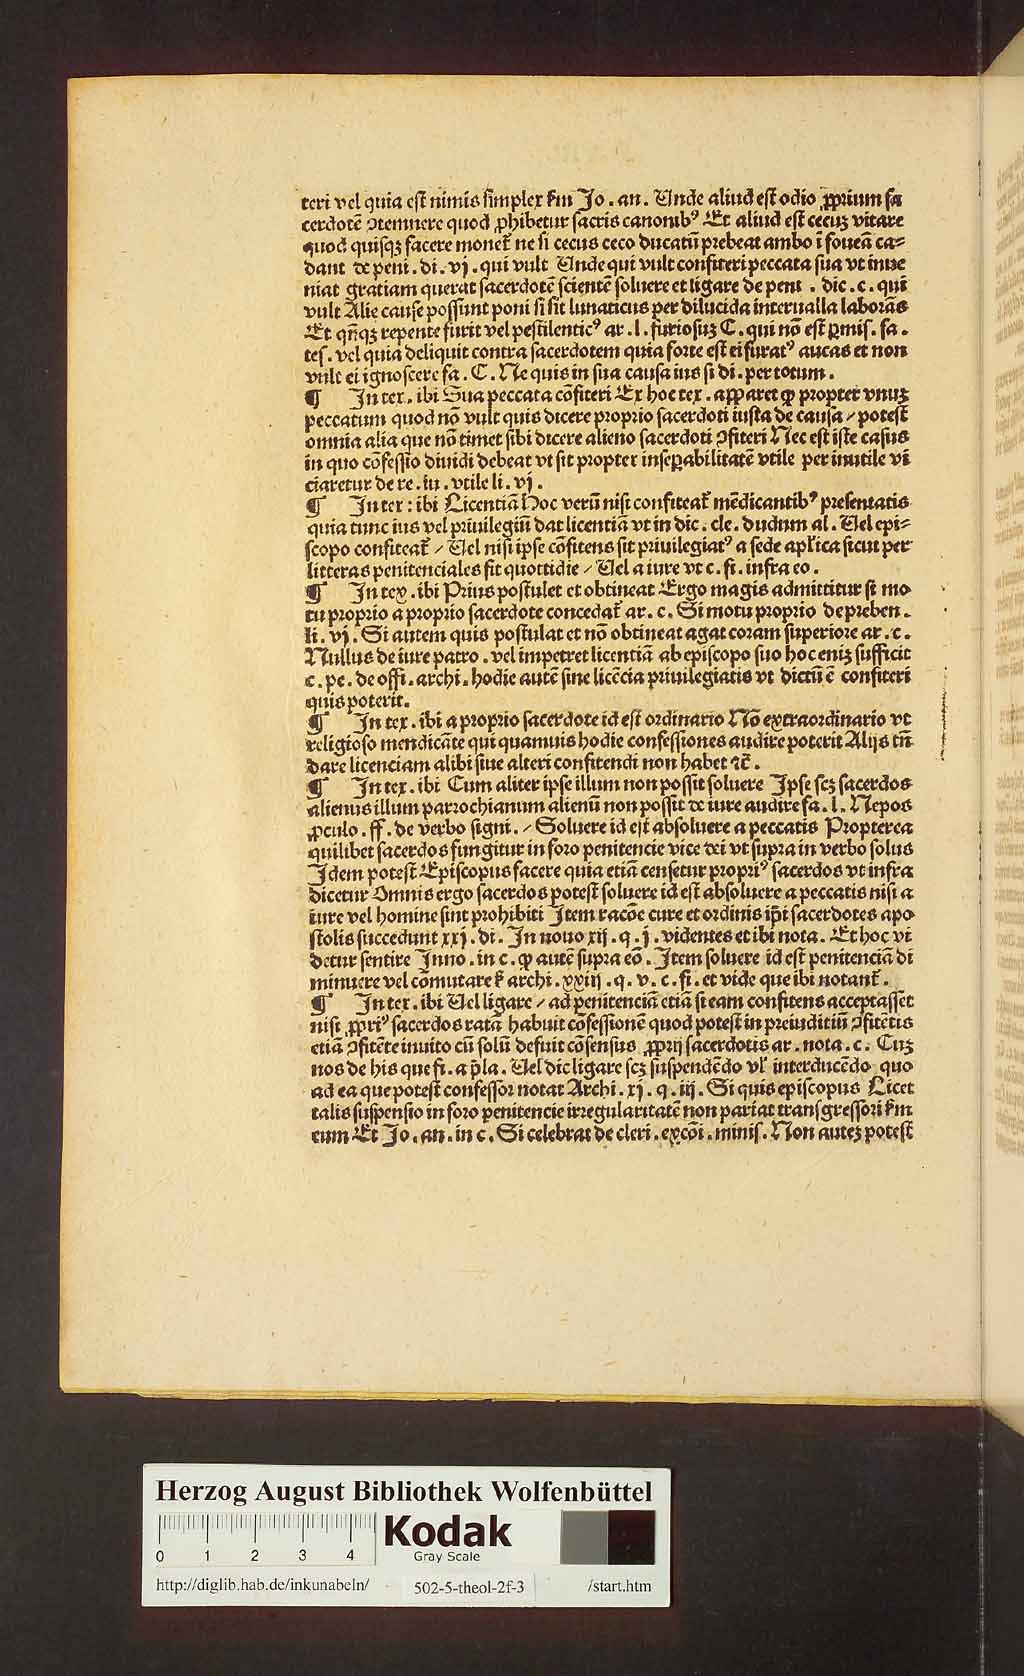 teri vel quia est nimis simplex km̄ Jo . an . Unde aliud est odio ꝓprium sa
cerdotē ꝯtemnere quod ꝓhibetur sacris canonibꝰ Et aliud est cecuꝫ vitare
quod quisqꝫ facere monet̄ ne si cecus ceco ducatū prebeat ambo ī foueā ca⸗
dant de peni . di . vj . qui vult Unde qui vult confiteri peccata sua vt inue
niat gratiam querat sacerdotē scientē soluere et ligare de peni . dic . c . qui
vult Alie cause possunt poni si sit lunaticus per dilucida interualla laborās
Et qn̄qꝫ repente furit vel pestilenticꝰ ar . l . furiosuꝫ C . qui nō est ꝑmis . fa .
tes . vel quia deliquit contra sacerdotem quia forte est ei furatꝰ aucas et non
vult ei ignoscere fa . C . Ne quis in sua causa ius si di . per totum .
¶ In tex . ibi Sua peccata cōfiteri Ex hoc tex . apparet ꝙ propter vnuꝫ
peccatum quod nō vult quis dicere proprio sacerdoti iusta de causa / potest
omnia alia que nō timet sibi dicere alieno sacerdoti ꝯfiteri Nec est iste casus
in quo cōfessio diuidi debeat vt sit propter inseꝑabilitatē vtile per inutile vi
ciaretur de re . iu . vtile li . vj .
¶ In tex : ibi Licentiā Hoc verū nisi confiteat̄ mēdicantibꝰ presentatis
quia tunc ius vel priuilegiū dat licentiā vt in dic . cle . dudum al . Uel epi⸗
scopo confiteat̄ / Uel nisi ipse cōfitens sit priuilegiatꝰ a sede apl̄ica sicut per
litteras penitenciales fit quottidie / Uel a iure vt c . fi . infra eo .
¶ In tex . ibi Prius postulet et obtineat Ergo magis admittitur si mo
tu proprio a proprio sacerdote concedat̄ ar . c . Si motu proprio de preben .
li . vj . Si autem quis postulat et nō obtineat agat coram superiore ar . c .
Nullus de iure patro . vel impetret licentiā ab episcopo suo hoc eniꝫ sufficit
c . pe . de offi . archi . hodie autē sine licēcia priuilegiatis vt dictū ē confiteri
quis poterit .
¶ In tex . ibi a proprio sacerdote id est ordinario Nō extraordinario vt
religioso mendicāte qui quamuis hodie confessiones audire poterit Alijs tn̄
dare licenciam alibi siue alteri confitendi non habet ⁊c̄ .
¶ In tex . ibi Cum aliter ipse illum non possit soluere Ipse scꝫ sacerdos
alienus illum parrochianum alienū non possit de iure audire fa . l . Nepos
ꝓculo . ff . de verbo signi . / Soluere id est absoluere a peccatis Propterea
quilibet sacerdos fungitur in foro penitencie vice dei vt supra in verbo solus
Idem potest Episcopus facere quia etiā censetur propriꝰ sacerdos vt infra
dicetur Omnis ergo sacerdos potest soluere id est absoluere a peccatis nisi a
iure vel homine sint prohibiti Item racōe cure et ordinis ip̄i sacerdotes apo
stolis succedunt xxj . di . In nouo xij . q . j . videntes et ibi nota . Et hoc vi
detur sentire Inno . in c . ꝙ autē supra eō . Item soluere id est penitenciā di
minuere vel cōmutare ẜ archi . xxiij . q . v . c . fi . et vide que ibi notant̄ .
¶ In tex . ibi Uel ligare / ad penitenciā etiā si eam confitens acceptasset
nisi ꝓpriꝰ sacerdos ratā habuit cōfessionē quod potest in preiuditiū ꝯfitētis
etiā ꝯfitēte inuito cū solū defuit cōsensus ꝓprij sacerdotis ar . nota . c . Cuꝫ
nos de his que fi . a p̄la . Uel dic ligare scꝫ suspendēdo vl̓ interducēdo quo
ad ea que potest confessor notat Archi . xj . q . iij . Si quis episcopus Licet
talis suspensio in foro penitencie irregularitatē non pariat transgressori km̄
eum Et Jo . an . in c . Si celebrat de cleri . excōi . minis . Non auteꝫ potest
Herzog August Bibliothek Wolfenbüttel
Kodak
Gray Scale
0 1 2 3 4
http://diglib.hab.de/inkunabeln/ 502-5-theol-2f-3 /start.htm